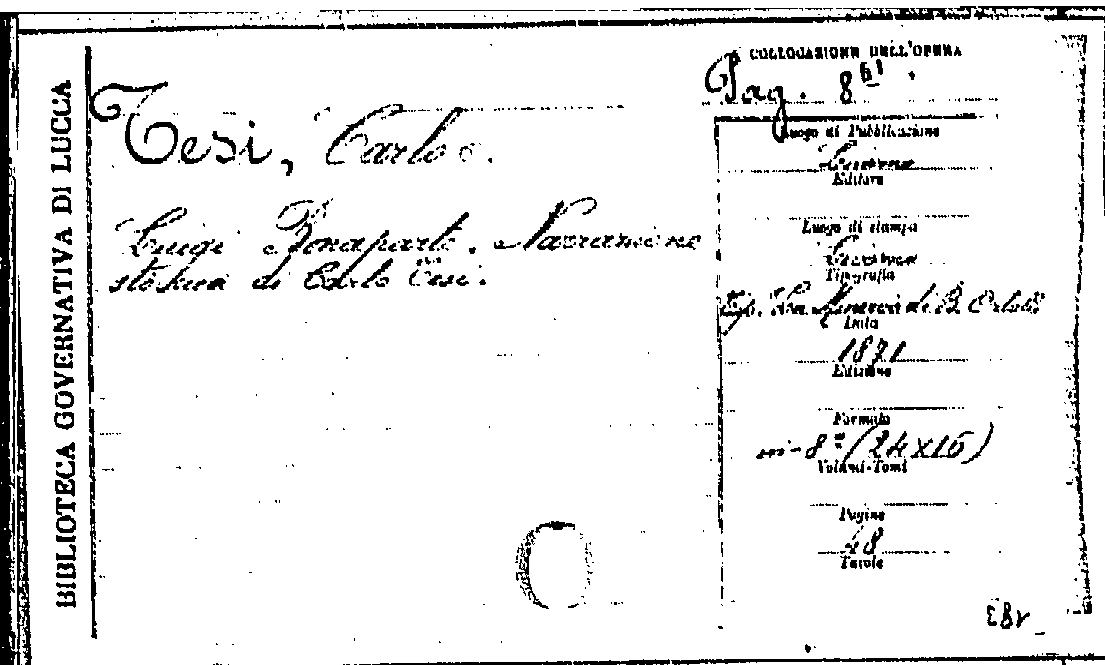 BIBLIOTECA GOVERNATIVA DI LUCCA
COLLOCAZIONE DELL'OPERA
Pag. 8
Tesi, Carlo
Luigi Bonaparte. Narrazione
storica di Carlo Tesi.
Luogo di Pubblicazione
Editore
Luogo di stampa
Tipografia
Tip. di B.
Data
1871
Edizione
Formato
in-8° (24x16)
Volumi-Tomi
Pagine
48
Tavole